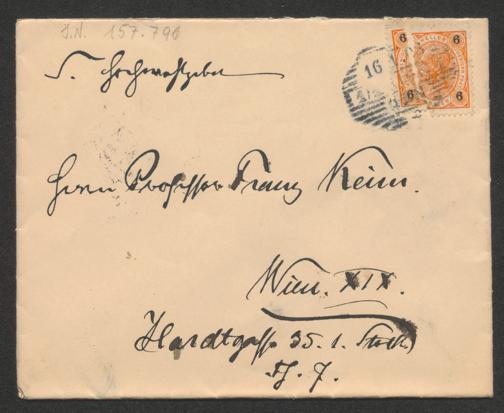 J.N. 157.796
S. Hochwohlgeboren
Herrn Professor Franz Keim.
Wien. XIX.
Hardtgasse 35. 1. Stock
Th. 7.
6 6
6 6
16